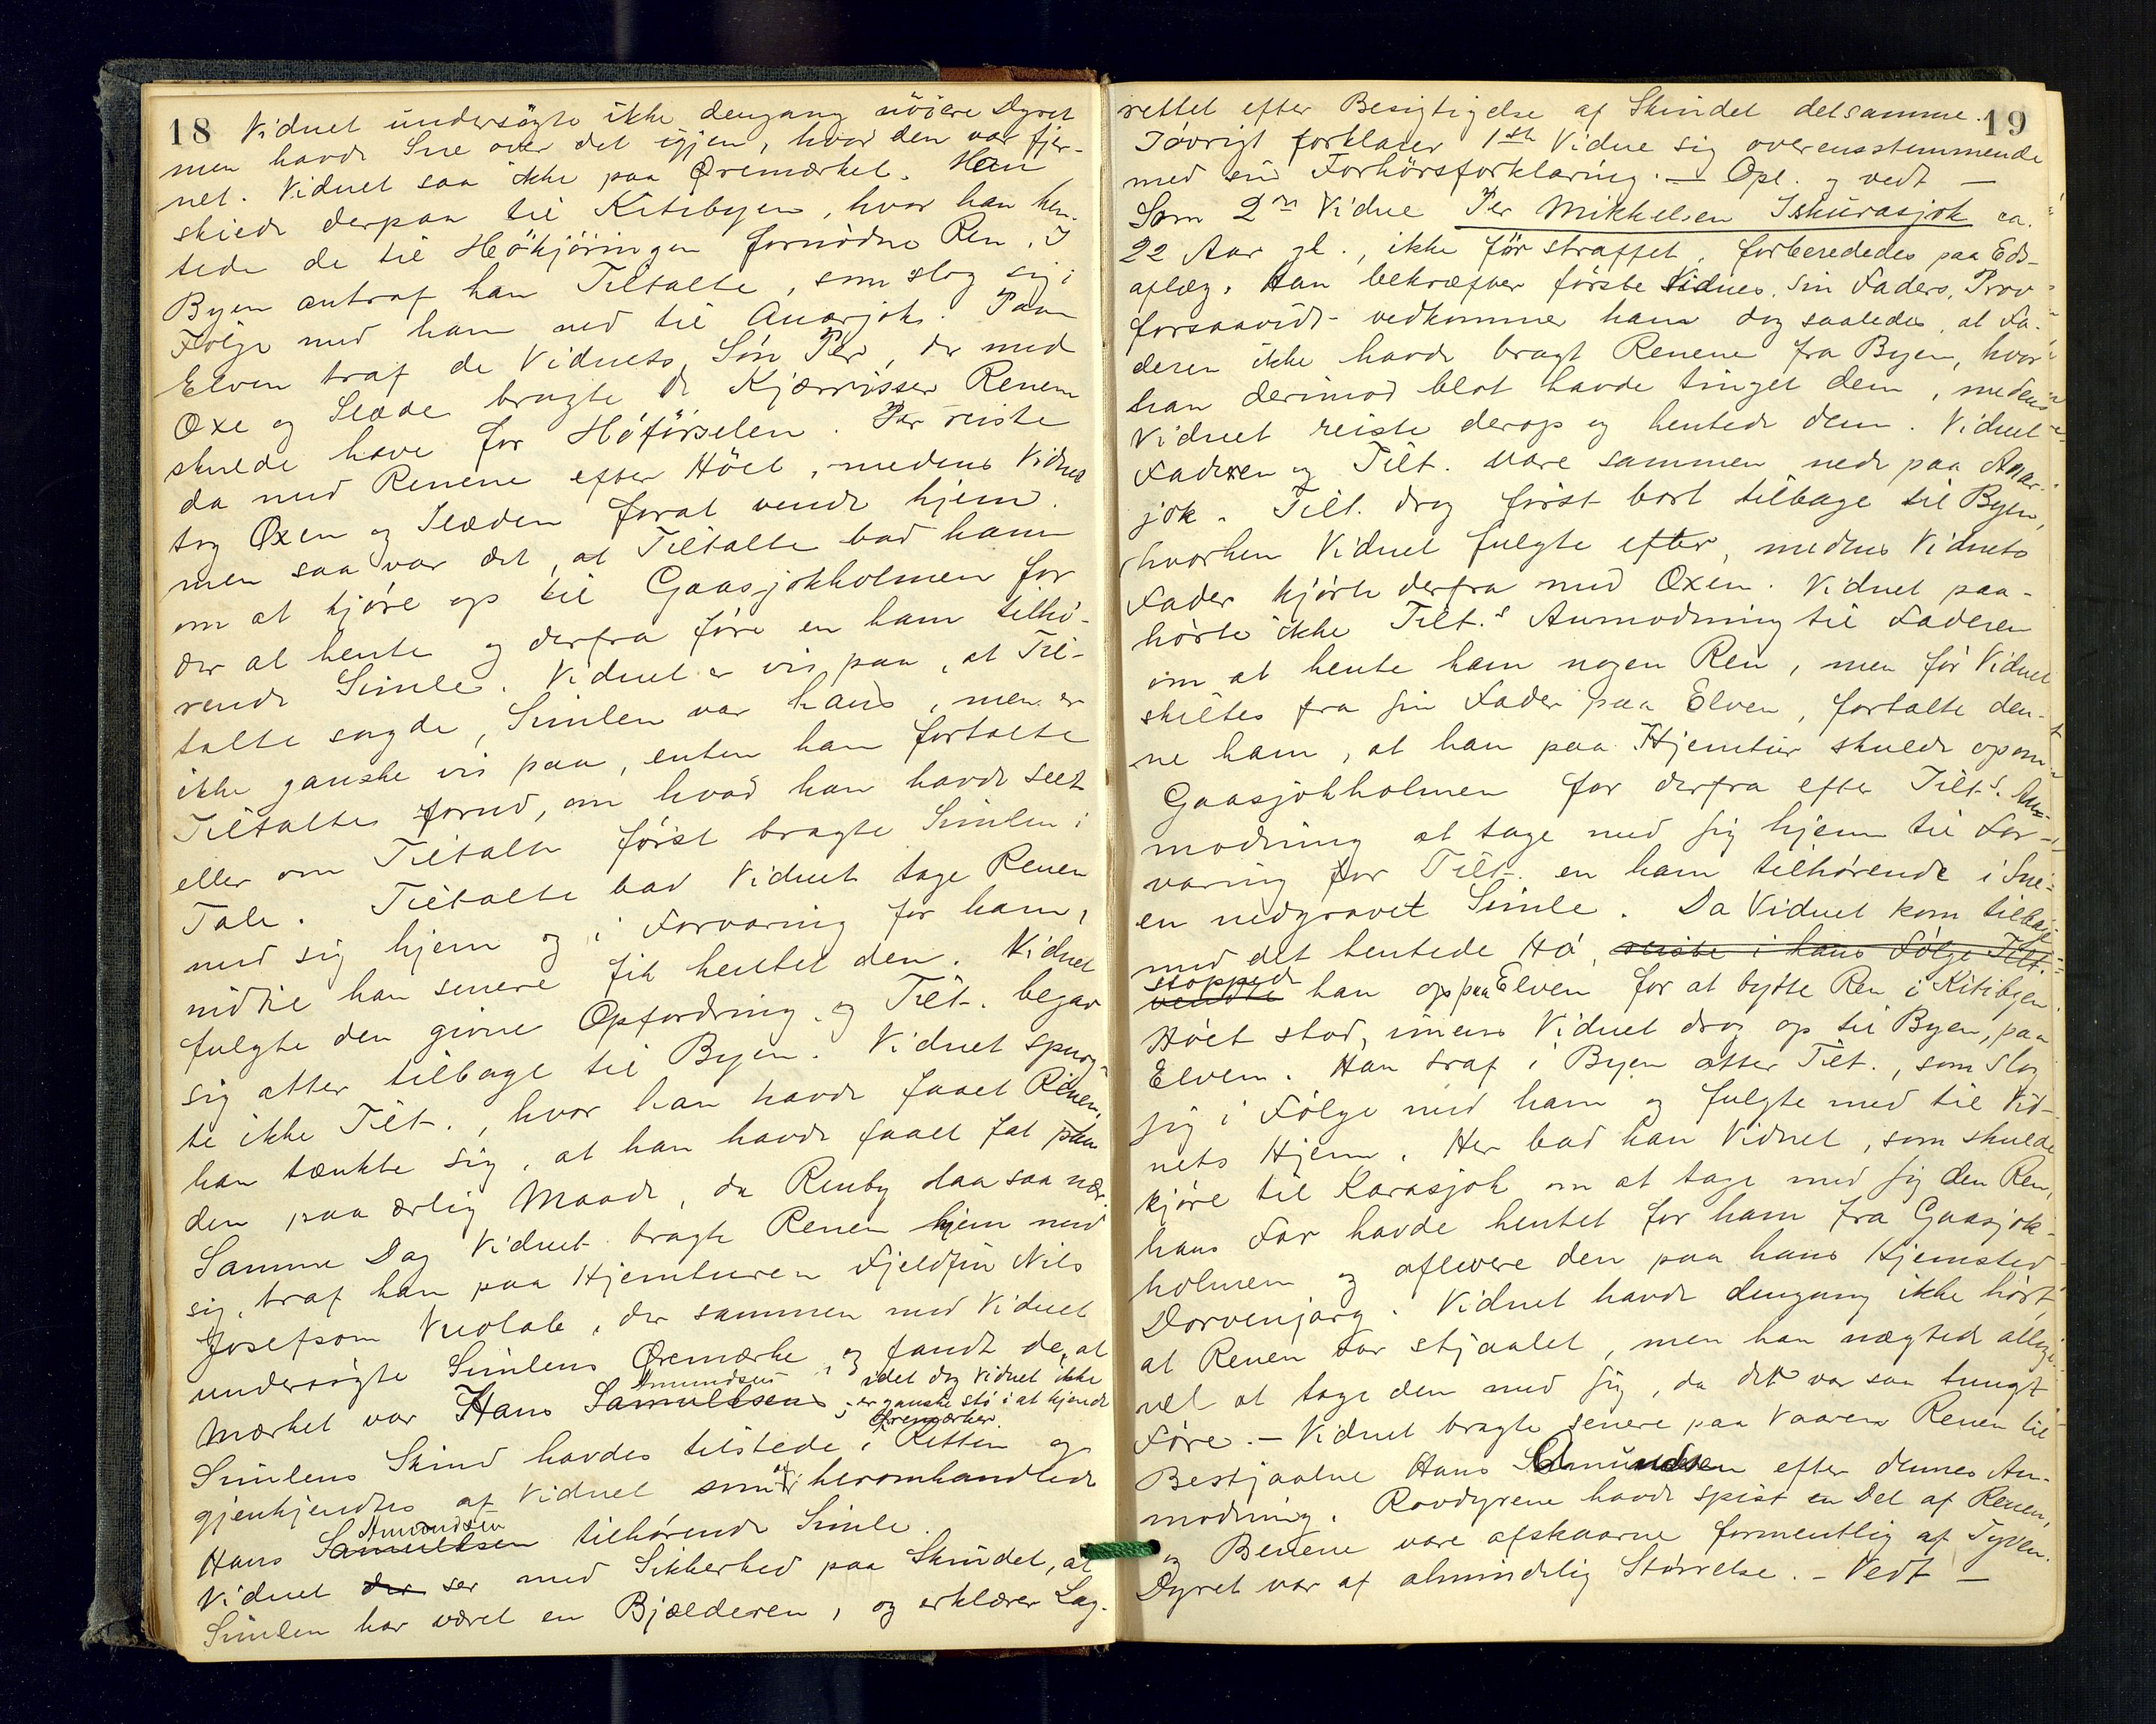 18 Vidnet undersøgte ikke dengang nöiere Dyret
men havde Sne over det igjen, hvor den var fjer-
net. Vidnet saa ikke paa Øremærket. Han
skiede derpaa til Kitibyen, hvor han hen-
tede de til Høkjøringen fornødne Ren. I
Byen antraf han Tiltalte, som slog sig i
Følge med ham ned til Anarjok. Paa
Elven traf de Vidnets Søn Per, der med
Oxe og Slæde bragte de Kjærrisser Renene
skulde have for Høførselen. Per reiste
da med Renene efter Høet, medens Vidnet
tog Oxen og Slæden forat vende hjem.
men saa var det, at Tiltalte bad ham
om at kjøre op til Gaasjokholmen for
der at hente og derfra føre en ham tilhø-
rende Simle. Vidnet er vis paa, at Til-
talte sagde, Simlen var hans, men er
ikke ganske vis paa, enten han fortalte
Tiltalte forud, om hvad han havde seet
eller om Tiltalte først bragte Simlen i
Tale. Tiltalte bad Vidnet tage Renen
med sig hjem og i Forvaring for ham,
indtil han senere fik hentet den. Vidnet
fulgte den givne Opfordring, og Tilt. begav
sig atter tilbage til Byen. Vidnet spurg-
te ikke Tilt., hvor han havde faaet Renen,
han tænkte sig, at han havde faaet fat paa
den paa ærlig Maade, da Renby laa saa nær.
Samme Dag Vidnet bragte Renen hjem med
sig, traf han paa Hjemturen Fjeldfin Nils
Josefsen Vuolab, der sammen med Vidnet
undersøgte Simlens Øremærke, og fandt de, at
Mærket var Hans Samuelsens Amundsens; idet dog Vidnet ikke
er ganske stø i at kjende
Øremærker.
Simlens Skind havdes tilstede i Retten og
gjenkjendtes af Vidnet som heromhandlede
Hans Samuelsen Amundsen tilhørende Simle.
Vidnet der ser med Sikkerhed paa Skindet, at
Simlen har været en Bjælderen, og erklærer Lag-
19
rettet efter Besigtigelse af Skindet detsamme.
Iøvrigt forklarer 1ste Vidne sig overensstemmende
med sin Forhörsforklaring. — Opl. og vedt —
Som 2det Vidne Per Mikkelsen Iskurasjok ca.
22 Aar gl., ikke før straffet, forberededes paa Eds-
aflæg. Han bekræfter første Vidnes, sin Faders, Prov
forsaavidt vedkommer ham dog saaledes, at Fa-
deren ikke havde bragt Renene fra Byen, hvor
han derimod blot havde tinget dem, medens
Vidnet reiste derop og hentede dem. Vidnet
Faderen og Tilt. vare sammen nede paa Anar-
jok. Tilt. drog først bort tilbage til Byen,
hvorhen Vidnet fulgte efter, medens Vidnets
Fader kjørte derfra med Oxen. Vidnet paa-
hørte ikke Tilt.s Anmodning til Faderen
om at hente ham nogen Ren, men før Vidnet
skiltes fra sin Fader paa Elven, fortalte den-
ne ham, at han paa Hjemtur skulde op om
Gaasjokholmen for derfra efter Tilts. An-
modning at tage med sig hjem til For-
varing for Tilt. en ham tilhørende i Sne-
en nedgravet Simle. Da Vidnet kom tilbage
med det hentede Hø, reiste i hans Følge Tilt.
vendte stoppede han op paa Elven for at bytte Ren i Kitibyen.
Høet stod, imens Vidnet drog op til Byen, paa
Elven. Han traf i Byen atter Tilt., som slog
sig i Følge med ham og fulgte med til Vid-
nets Hjem. Her bad han Vidnet, som skulde
kjøre til Karasjok om at tage med sig den Ren,
hans Far havde hentet for ham fra Gaasjok-
holmen og aflevere den paa hans Hjemsted
Dorvenjarg. Vidnet havde dengang ikke hørt,
at Renen var stjaalet, men han nægtede allige-
vel at tage den med sig, da det var saa tungt
Føre. — Vidnet bragte senere paa Vaaren Renen til
Bestjaalne Hans Amundsen efter dennes An-
modning. Rovdyrene havde spist en Del af Renen,
og Benene vare afskaarne formentlig af Tyven.
Dyret var af almindelig Størrelse. — Vedt —